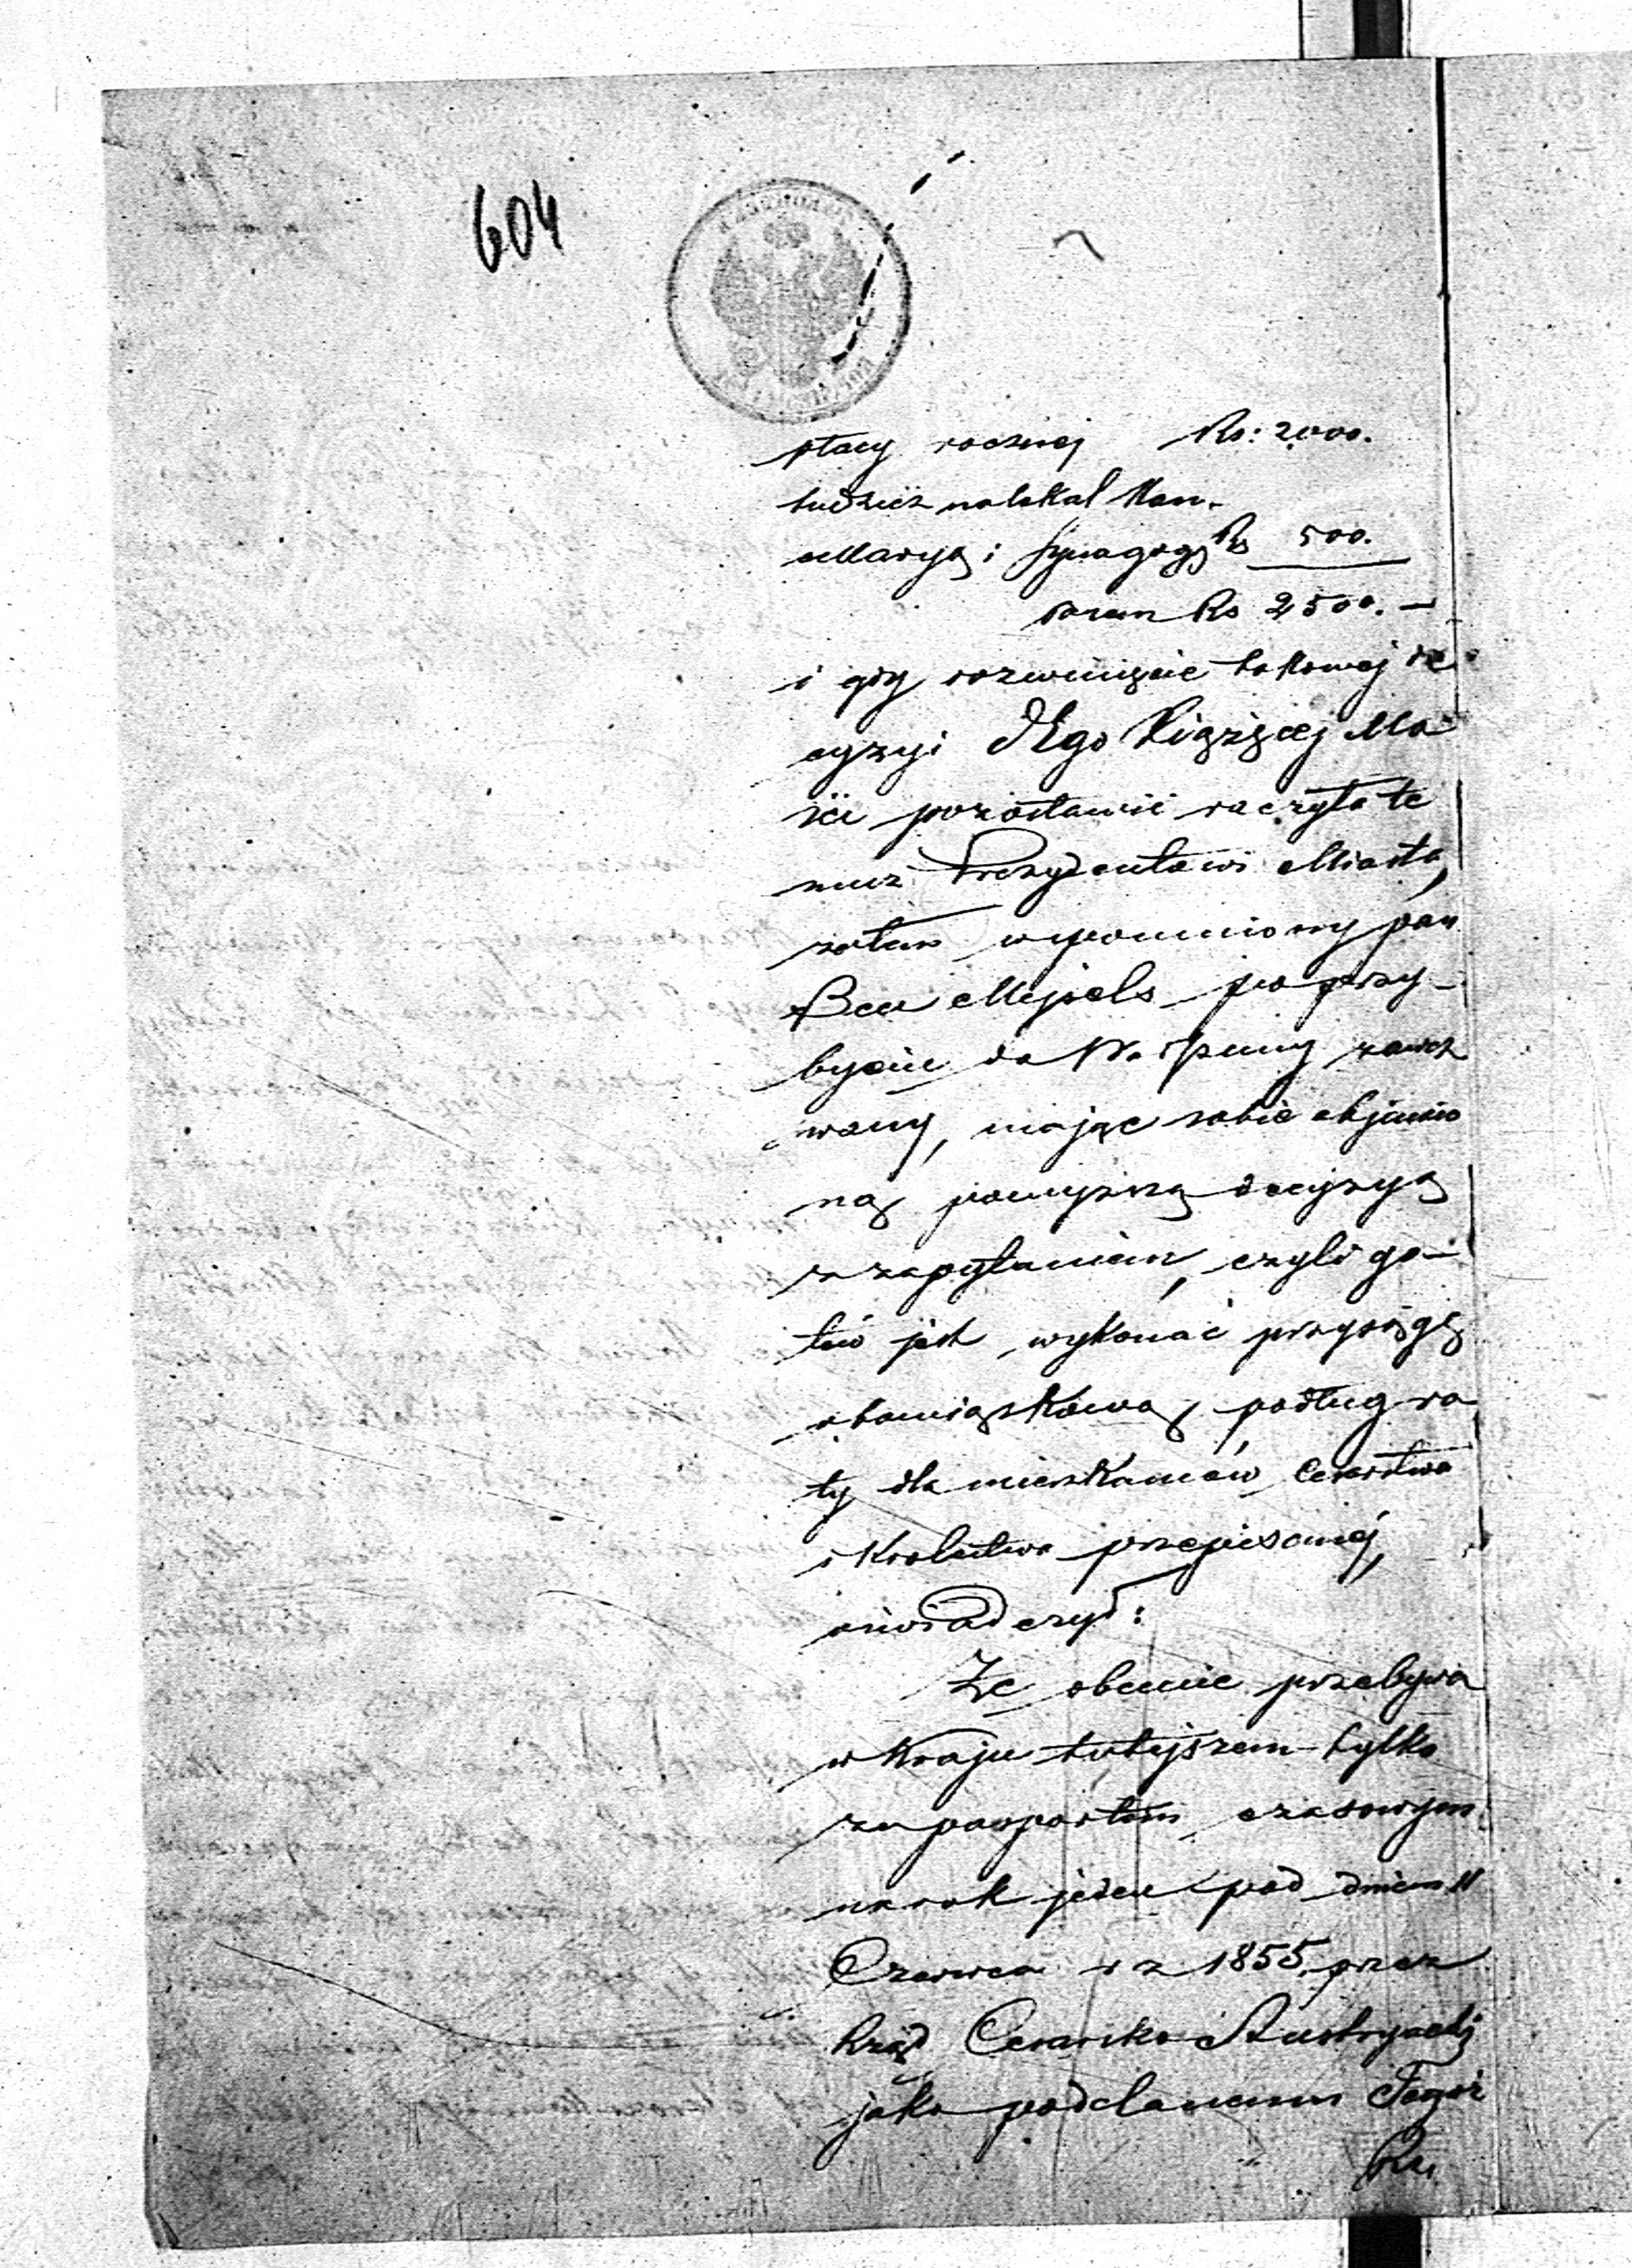 604
płacy rocznej Rs: 2000.
tudzież na lokal Kan-
cellaryą i Synagogę Rs 500.
razem Rs 2500. —
i gdy rozwinięcie takowej de
cyzyi JEgo Xiążęcej Mo
ści pozostawić raczyła te
muż Prezydentowi Miasta,
zatem wspomniony pan
Beer Mejsels po przy-
byciu do Warszawy zawez
wany, mając sobie objawio
ną powyższą decyzyą
z zapytaniem, czyli go-
tów jest wykonać przysięgę
obowiązkową, podług ro
ty dla mieszkańców Cesarstwa
i Królestwa przepisanej,
oświadczył:
Że obecnie przebywa
w Kraju tutejszem tylko
za paszportem czasowym
na rok jeden pod dniem 11
Czerwca r z 1855 przez
Rząd Cesarsko Austryacki
jako poddanemu Tegoż
Rzą